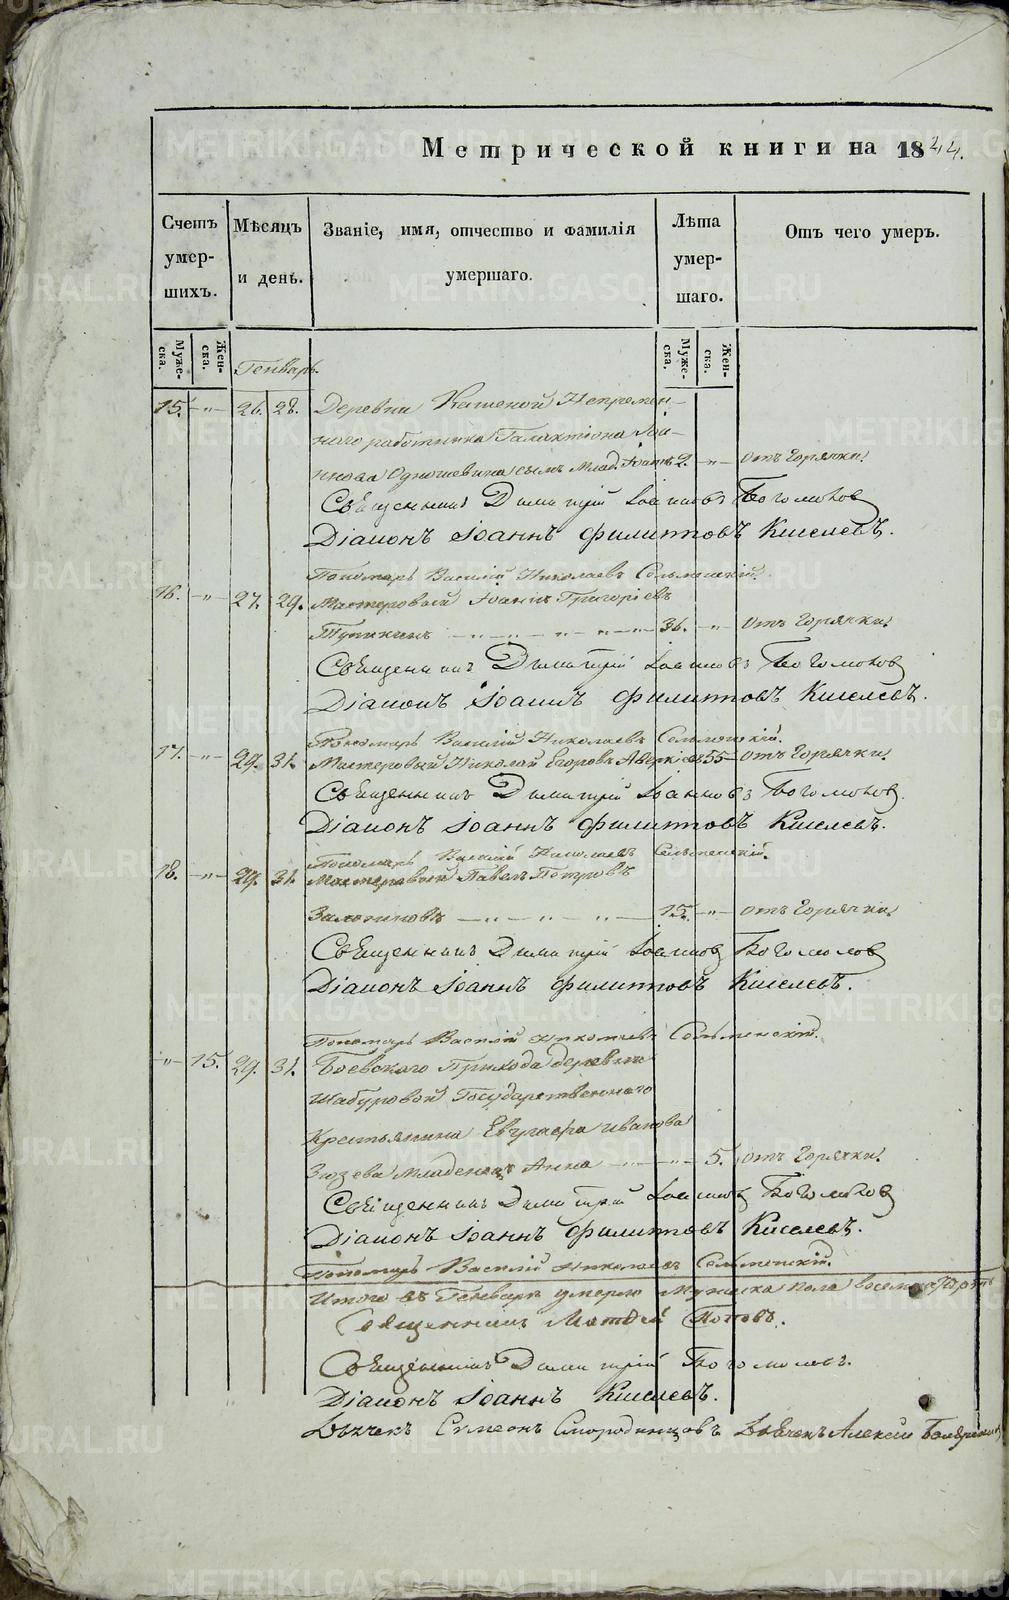 Метрической книги на 1844.
Счетъ умер-шихъ.
Мѣсяцъ и день.
Званіе, имя, отчество и фамилія умершаго.
Лѣта умер-шаго.
Отъ чего умеръ.
Муже-ска.
Жен-ска.
Муже-ска.
Жен-ска.
Генварь.
15. -"- 26. 28. Деревни Непремен-
наго работника Галактіона Іоа-
ннова сынъ Млад. 2. -"- отъ Горячки.
Священникъ Димитрій Іоанновъ Богомоловъ
Діаконъ Іоаннъ Филиповъ Киселевъ.
Пономарь Василій Николаевъ Сельменскій.
16. -"- 27. 29. Мастеровый Іоаннъ Григоріевъ
Тупикинъ 36. -"- отъ Горячки.
Священникъ Димитрій Іоанновъ Богомоловъ
Діаконъ Іоаннъ Филиповъ Киселевъ.
Пономарь Василій Николаевъ Сельменскій.
17. -"- 29. 31. Мастеровый Николай Егоровъ Аверкіевъ 55 - отъ Горячки.
Священникъ Димитрій Іоанновъ Богомоловъ.
Діаконъ Іоаннъ Филиповъ Киселевъ.
Пономарь Василій Николаевъ Сельменскій.
18. -"- 29. 31. Мастеровой Павелъ Петровъ
15. -"- отъ Горячки.
Священникъ Димитрій Іоанновъ Богомоловъ
Діаконъ Іоаннъ Филиповъ Киселевъ.
Пономарь Василій Николаевъ Сельменскій.
-"- 15. 29. 31. Боевского Прихода деревни
Шабуровой Государственнаго
Крестьянина Евграфа Иванова
Зюзева Младенецъ Анна -"- 5. отъ Горячки.
Священникъ Димитрій Іоанновъ Богомоловъ
Діаконъ Іоаннъ Филиповъ Киселевъ.
Пономарь Василій Николаевъ Сельменскій.
Итого въ Генварѣ умерло Мужеска пола
Священникъ Матѳей Поповъ.
Священникъ Димитрій Богомоловъ.
Діаконъ Іоаннъ Киселевъ.
Дьячекъ Симеонъ Смородинцовъ Дьячекъ Алексѣй
METRIKI.GASO-URAL.RU